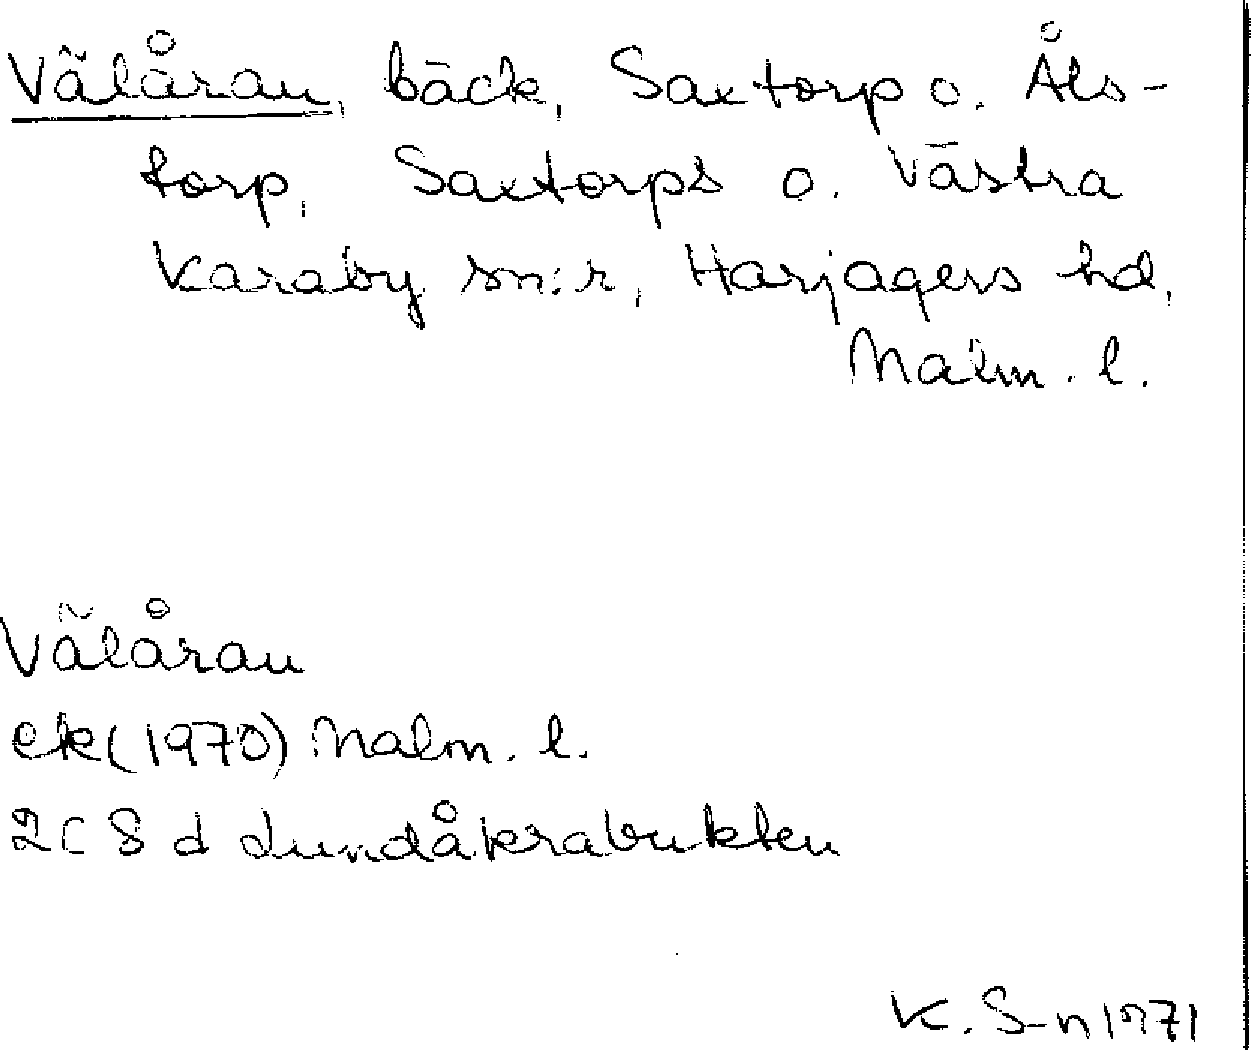 Välåran, bäck, Saxtorp o. Åls-
torp, Saxtorps o. Västra
Karaby sn:r, Harjagers hd,
Malm. l.
Välåran
ek(1970) Malm. l.
2C 8 d Lundåkrabukten
K. S-n 1971